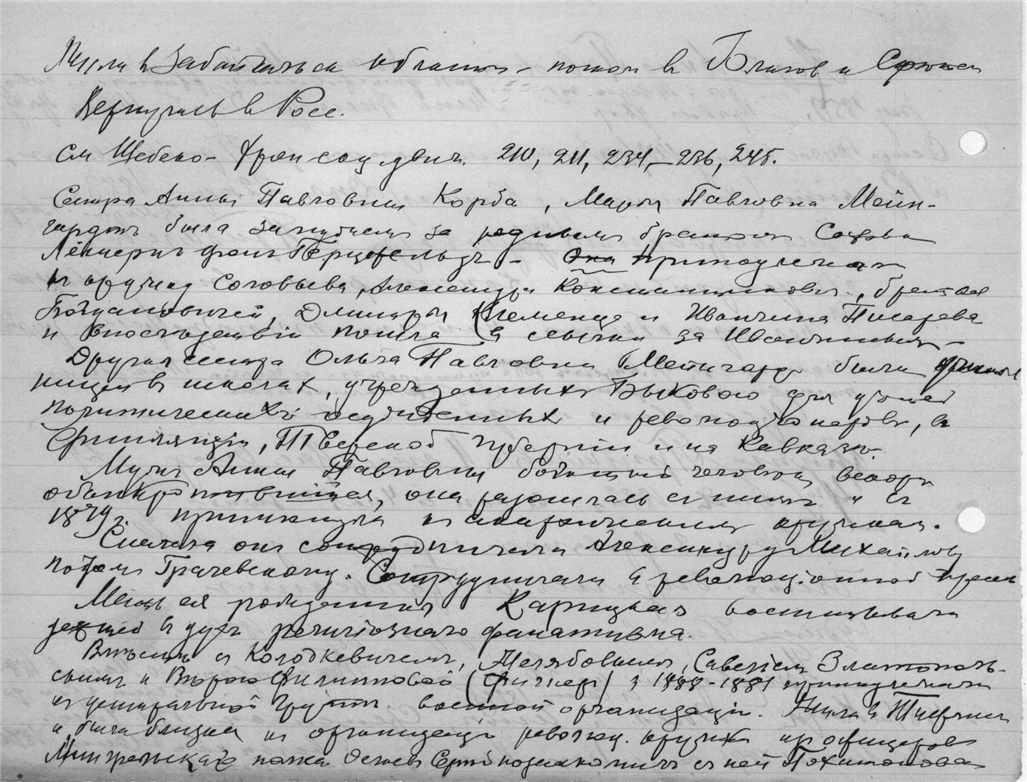 в Забайкальск области - потом в Благов и
Вернулись в Росс.
см Щебеко - 210, 211, 234-236, 245.
Сестра Анны Павловны Корба, Мария Павловна Мейн-
гардт была замужем за родным братом
фон Герцфельдт - она принадлежала
к кружку Соловьева, Александра Константиновича, братьев
Богдановичей, Дмитрия Клеменца и Иванчина Писарева
и впоследствии пошла в ссылку за
Другая сестра Ольга Павловна Мейнгардт была
ницей в школах, учрежденных Быковою для детей
политических осужденных и революционеров, в
Финляндии, Тверской губернии и на Кавказе.
Муж Анны Павловны богатый человек вскоре
обанкротившийся, она разошлась с ним и с
1879 г. примкнула к кружкам.
Сначала она сотрудничала Александру Михайлову
потом Грачевскому. Сотрудничала в революционной прессе
Мать ея рожденная воспитывала
детей в духе религиозного фанатизма.
Вместе с Колодкевичем, Желябовым, Савелием Златополь-
ским и Верою Филипповой (Фигнер) в 1880-1881 принадлежала
к центральной группе военной организации. Жила в Тифлисе
и была близка к организации революц. кружка офицеров
Мингрельского полка познакомил с ней Похитонова